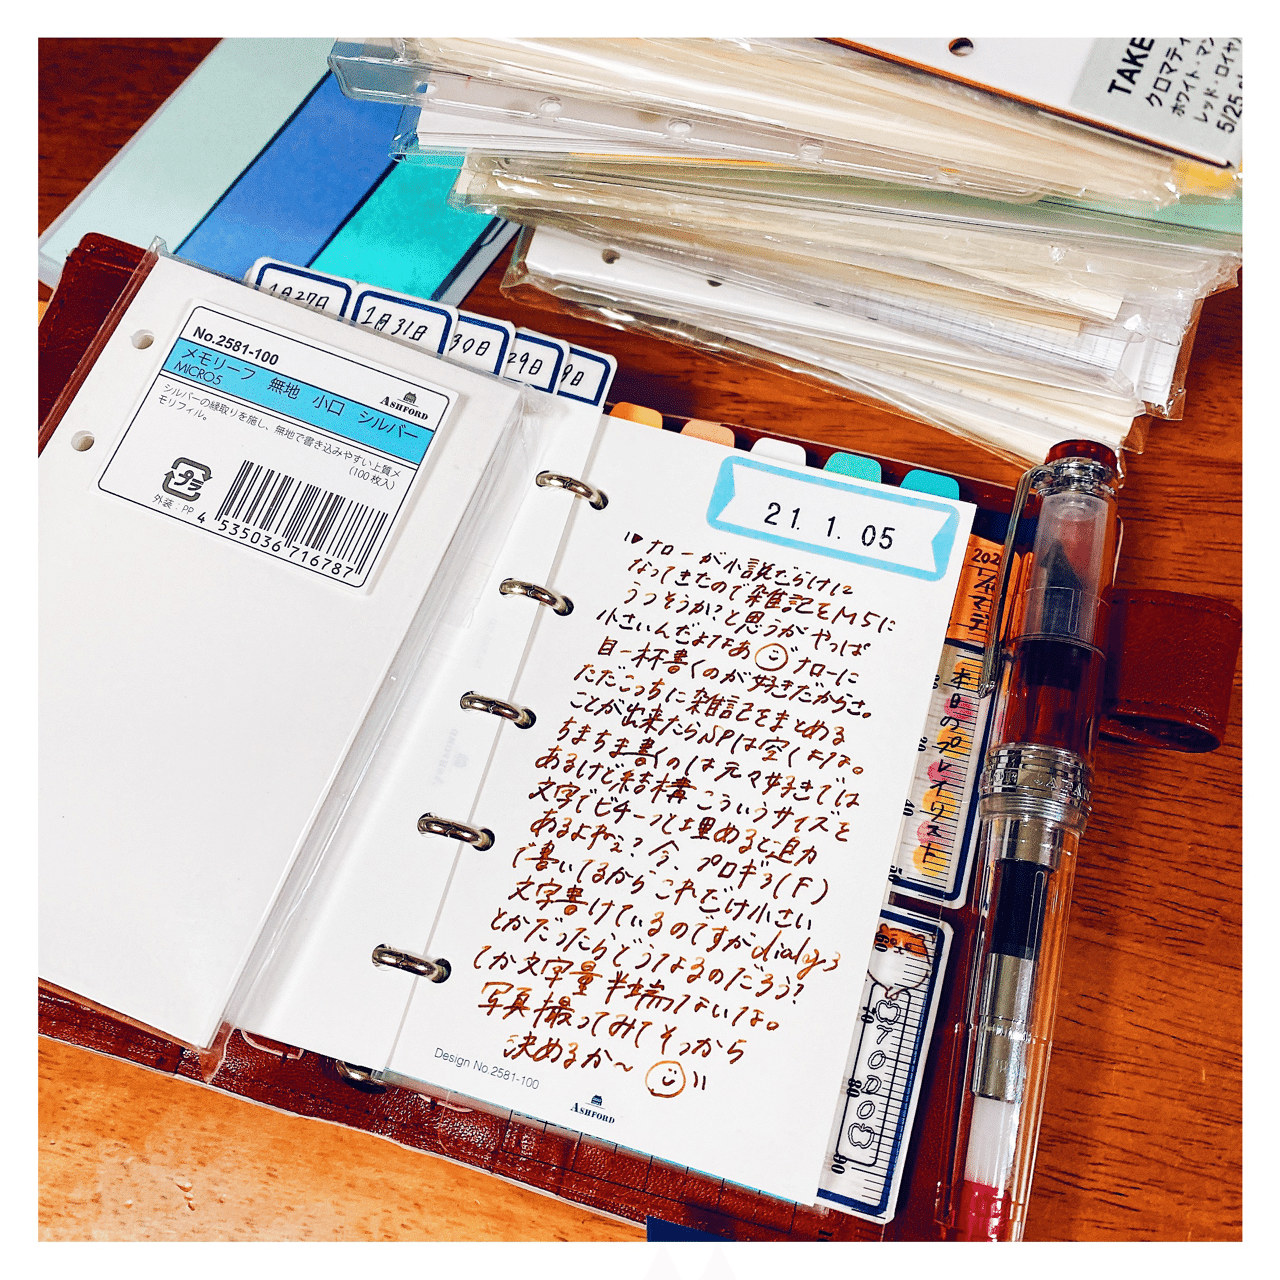 TAKE
クロマティ
ホワイト・マン
レッド・ロイヤ
5/25
1月27日
1月31日
30日
29日
8日
No.2581-100
メモリーフ 無地 小口 シルバー
MICRO5
ASHFORD
シルバーの縁取りを施し、無地で書き込みやすい上質メ
モリフィル。
(100枚入)
プラ
外装：PP
4 535036 716787
21. 1. 05
ナローが小説だらけに
なってきたので雑記をM5に
うつそうか?と思うがやっぱ
小さいんだよなあ ナローに
目一杯書くのが好きだからさ。
ただこっちに雑記をまとめる
ことが出来たらSPは空くよな。
ちまちま書くのは元々好きでは
あるけど結構こういうサイズを
文字でビチーっと埋めると迫力
あるよねぇ? 今、プロギラ(F)
で書いてるからこれだけ小さい
文字書けているのですがdialog3
とかだったらどうなるのだろう?
てか文字量半端ないな。
写真撮ってみてそっから
決めるか〜
Design No.2581-100
ASHFORD
202
本日のプレイリスト
20
40
50
60
70
80
90
TODO